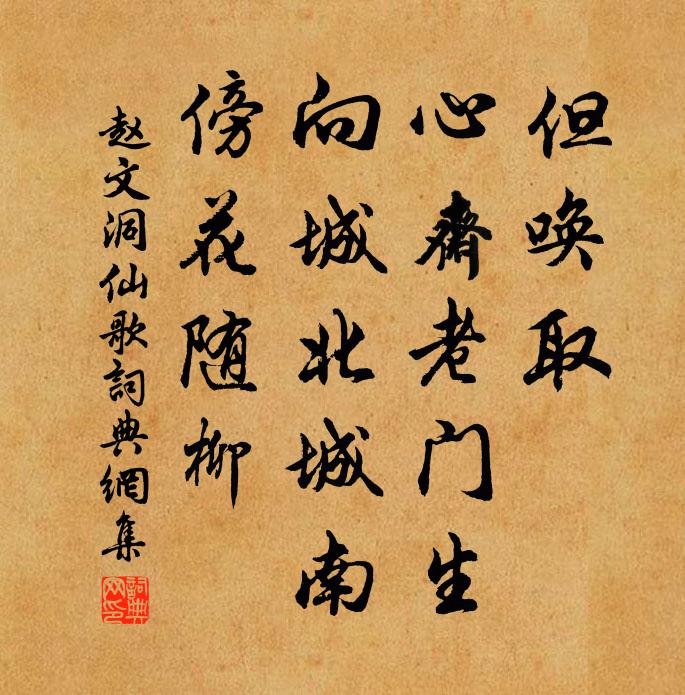 但唤取
心齋老门生
向城北城南
傍花随柳
赵文洞仙歌詞典網集
詞典网印